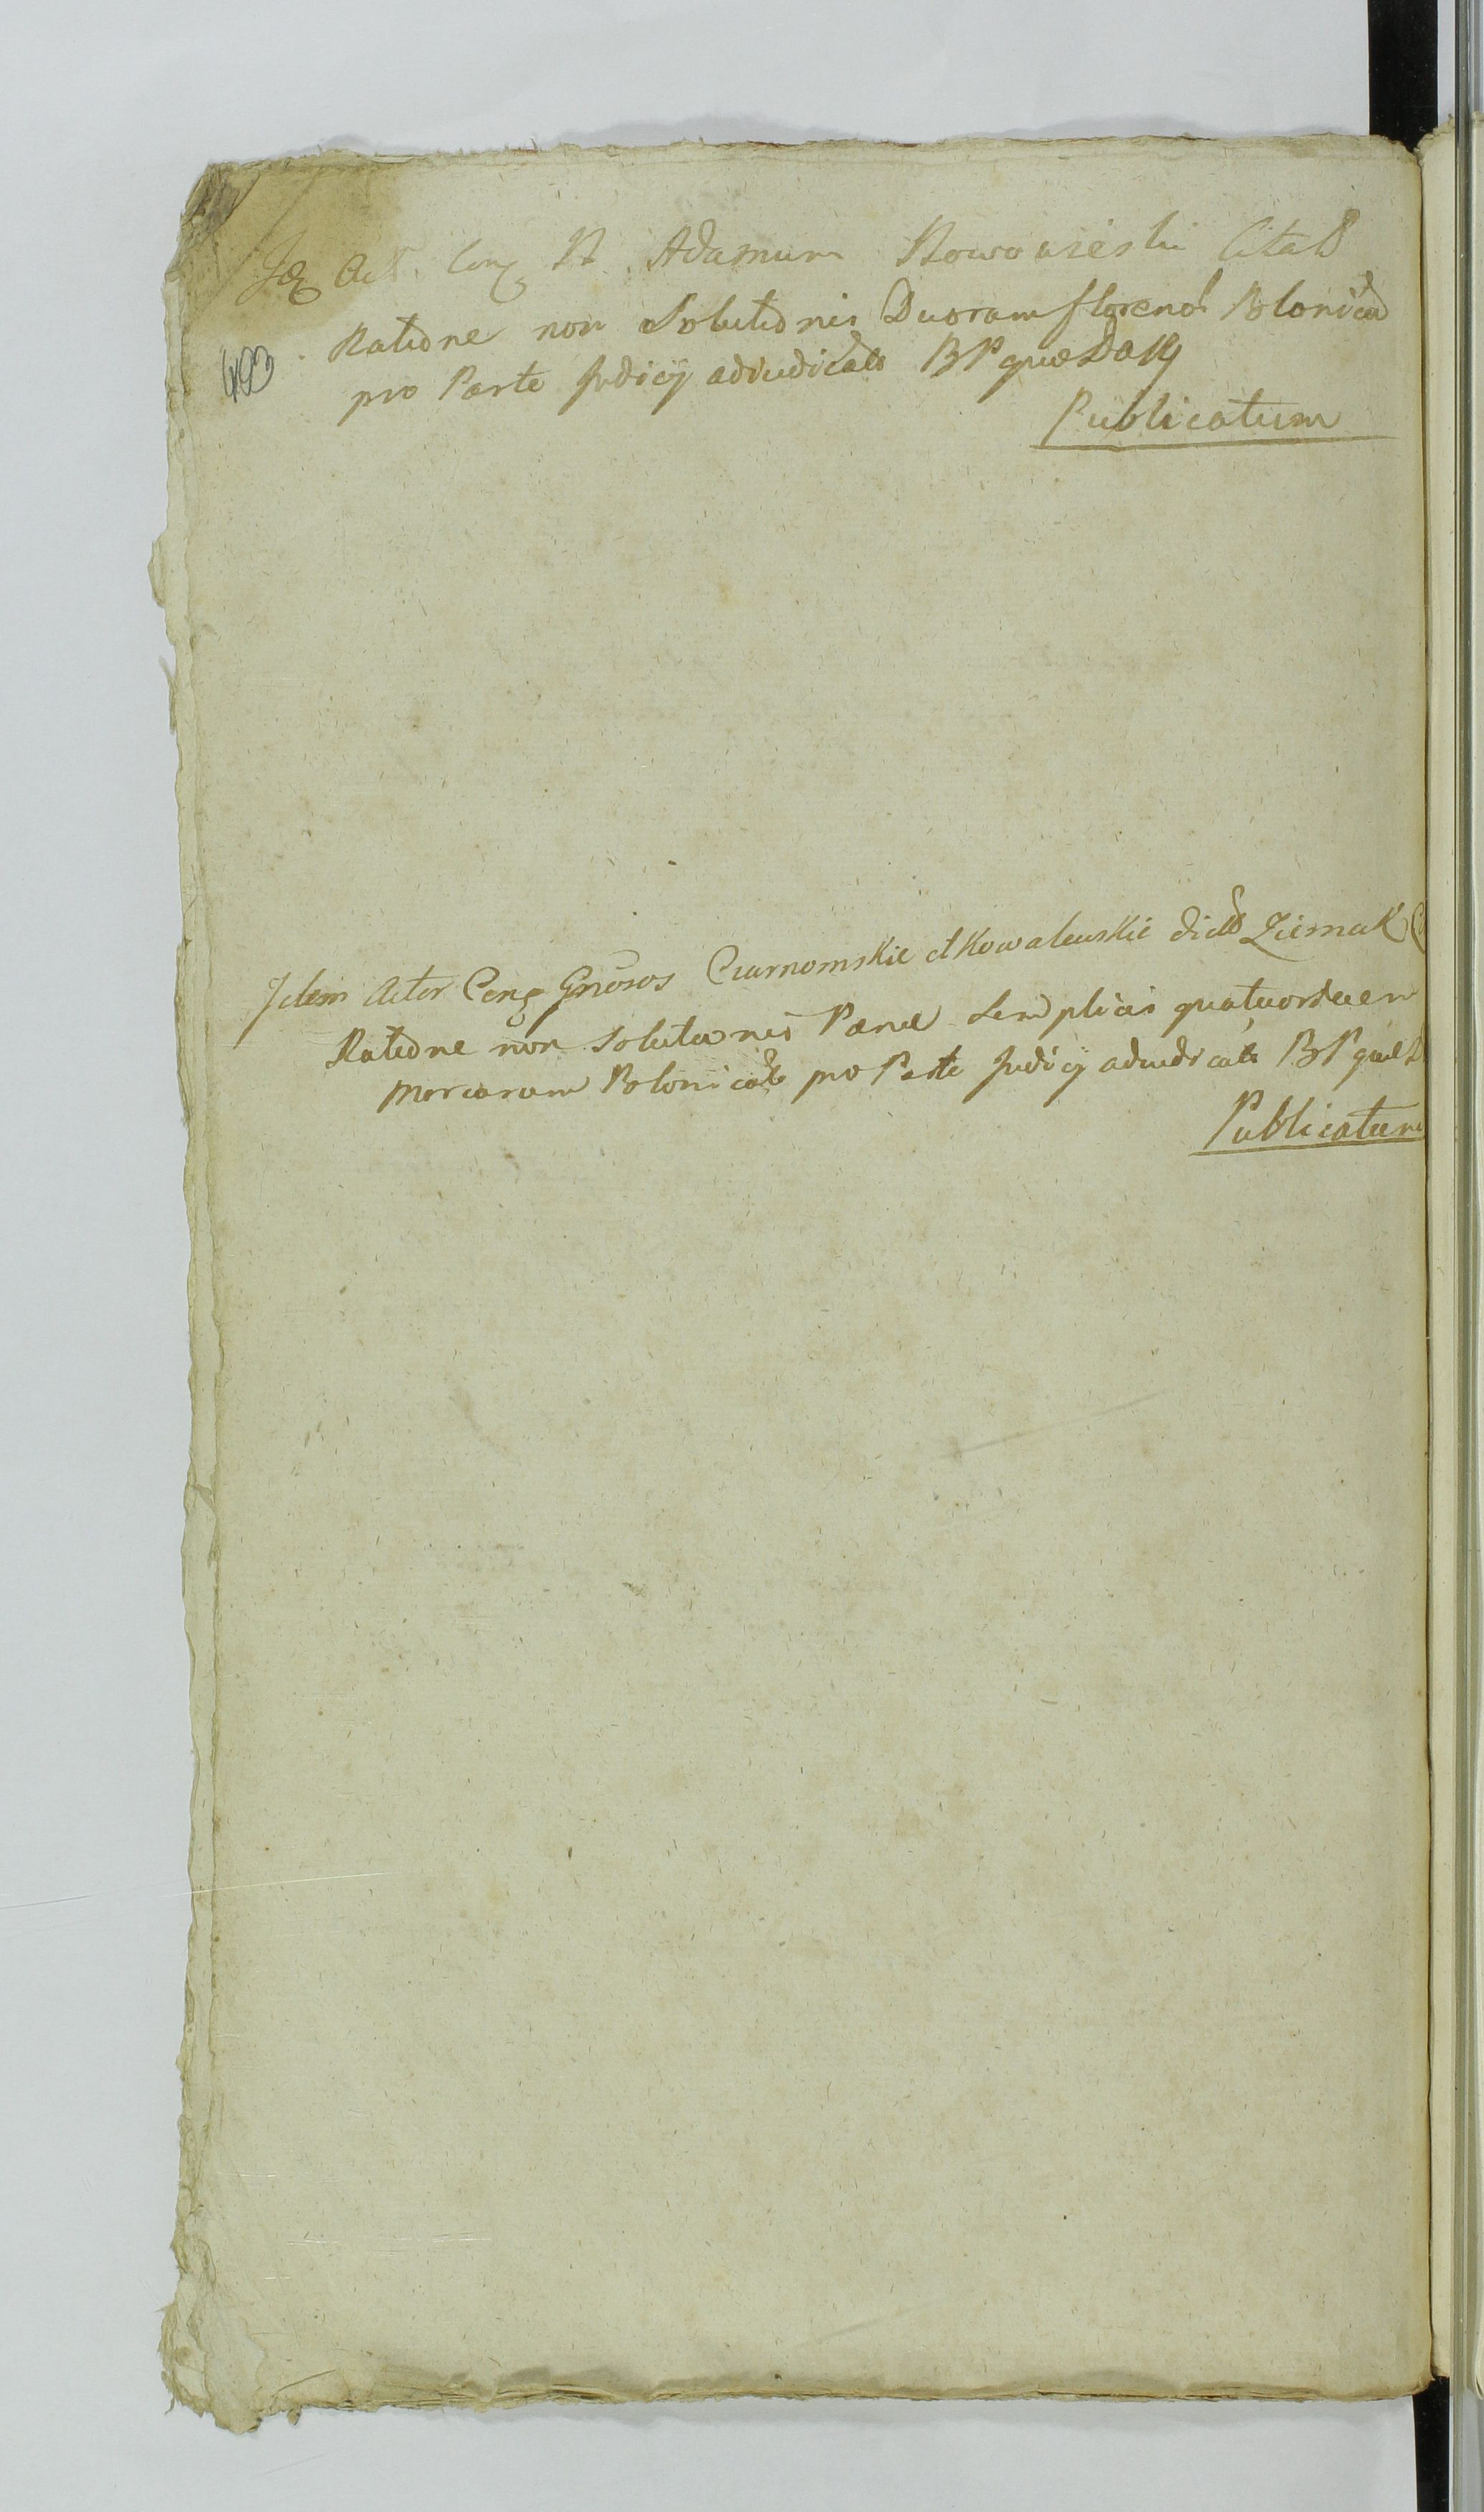 Act. Cong N. Adamum Nowowieski Citat
Ratione non Solutionis Duorum floren Polonical
493 pro Parte Judicij adiudicat BP quæ
Publicatum
Idem Actor Cong Gnosos Czarnomskie et Kowalewskie dict Ziemak
Ratione non solutionis Pænæ Semplicis quatuordecem
Marcarum Polonical pro Parte Judicij adiudicat BP quæ
Publicatum